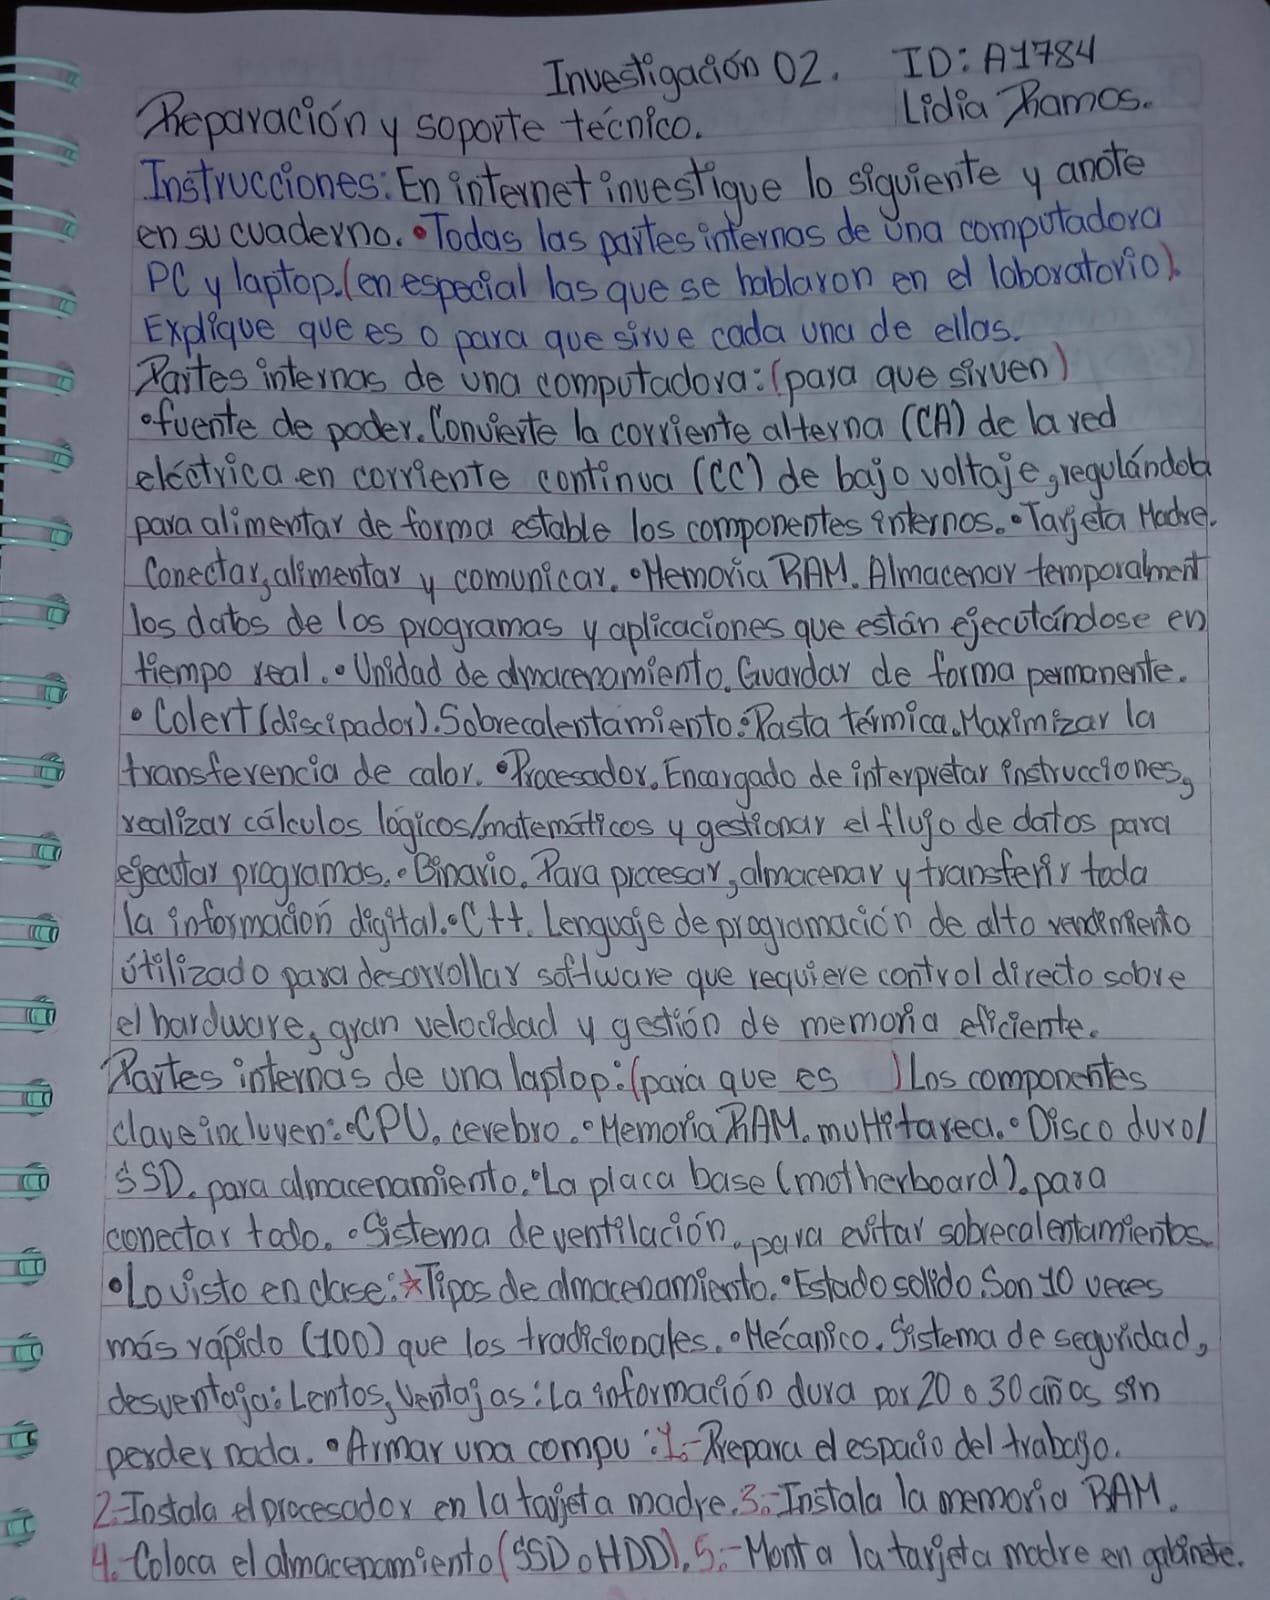 Investigación 02. ID: A1784
Reparación y soporte tecnico. Lidia Ramos.
Instrucciones: En internet investigue lo siguiente y anote
en su cuaderno. • Todas las partes internas de una computadora
PC y laptop. (en especial las que se hablaron en el laboratorio).
Explique que es o para que sirve cada una de ellas.
Partes internas de una computadora: (para que sirven)
• fuente de poder. Convierte la corriente alterna (CA) de la red
eléctrica en corriente continua (CC) de bajo voltaje, regulándola
para alimentar de forma estable los componentes internos. • Tarjeta Madre.
Conectar, alimentar y comunicar. • Memoria RAM. Almacenar temporalment
los datos de los programas y aplicaciones que están ejecutándose en
tiempo real. • Unidad de almacenamiento. Guardar de forma permanente.
• Colert (discipador). Sobrecalentamiento. • Pasta térmica. Maximizar la
transferencia de calor. • Procesador. Encargado de interpretar instrucciones,
realizar cálculos lógicos/matemáticos y gestionar el flujo de datos para
ejecutar programas. • Binario. Para procesar, almacenar y transferir toda
la información digital. • C++. Lenguaje de programación de alto rendimiento
útilizado para desarrollar software que requiere control directo sobre
el hardware, gran velocidad y gestión de memoria eficiente.
Partes internas de una laptop: (para que es ) Los componentes
clave incluyen: • CPU. cerebro. • Memoria RAM. multitarea. • Disco duro/
SSD. para almacenamiento. • La placa base (motherboard). para
conectar todo. • Sistema de ventilación. para evitar sobrecalentamientos.
• Lo visto en clase: * Tipos de almacenamiento. • Estado solido. Son 10 veces
más rápido (100) que los tradicionales. • Mécanico. Sistema de seguridad,
desventaja: Lentos, Ventajas: La información dura por 20 o 30 años sin
perder nada. • Armar una compu: 1.- Prepara el espacio del trabajo.
2.- Instala el procesador en la tarjeta madre. 3.- Instala la memoria RAM.
4.- Coloca el almacenamiento (SSD o HDD). 5.- Monta la tarjeta madre en gabinete.